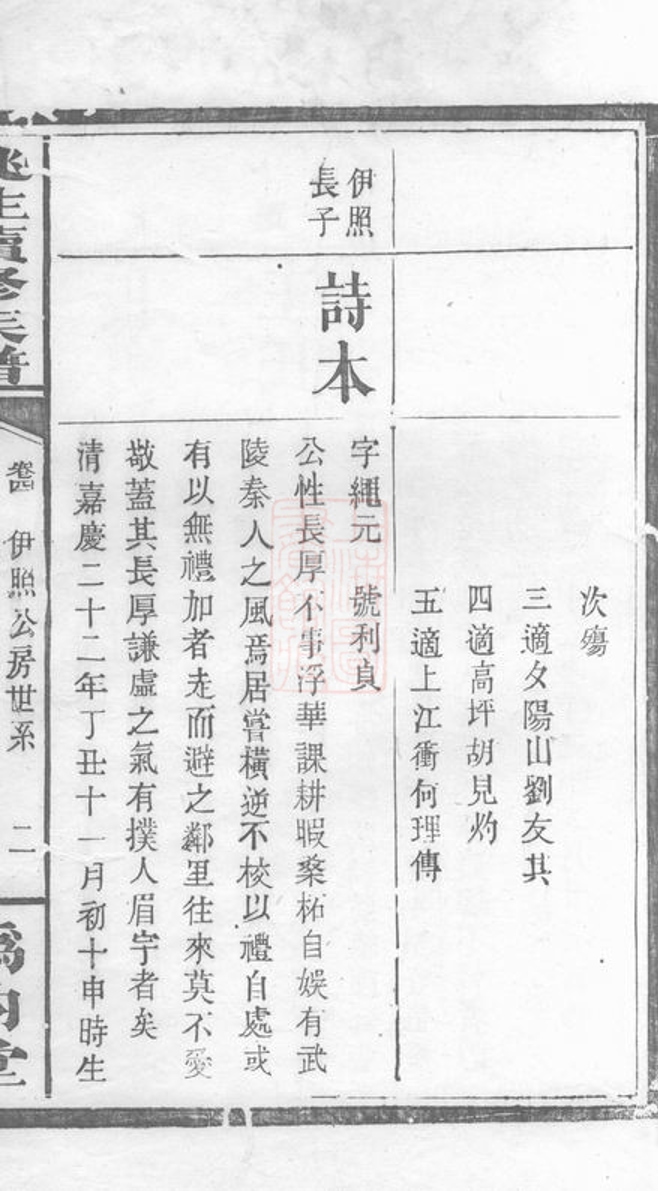 次殤
三適夕陽山劉友其
四適高坪胡見灼
五適上江衝何理傳
伊照
長子
詩本
字繩元 號利貞
公性長厚不事浮華課耕暇桑柘自娛有武
陵秦人之風焉居嘗橫逆不校以禮自處或
有以無禮加者走而避之鄰里往來莫不愛
敬蓋其長厚謙虛之氣有撲人眉宇者矣
清嘉慶二十二年丁丑十一月初十申時生
卷四 伊照公房世系 二